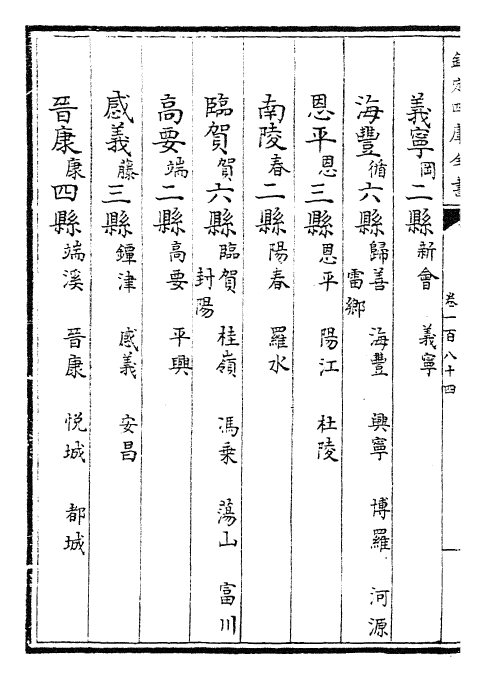 欽定四庫全書
卷一百八十四
義寧岡二縣新會 義寧
海豐循六縣歸善 海豐 興寧 博羅 河源
雷鄉
恩平恩三縣恩平 陽江 杜陵
南陵春二縣陽春 羅水
臨賀賀六縣臨賀 桂嶺 馮乗 蕩山 富川
封陽
高要端二縣高要 平興
感義藤三縣鐔津 感義 安昌
晉康康四縣端溪 晉康 悅城 都城